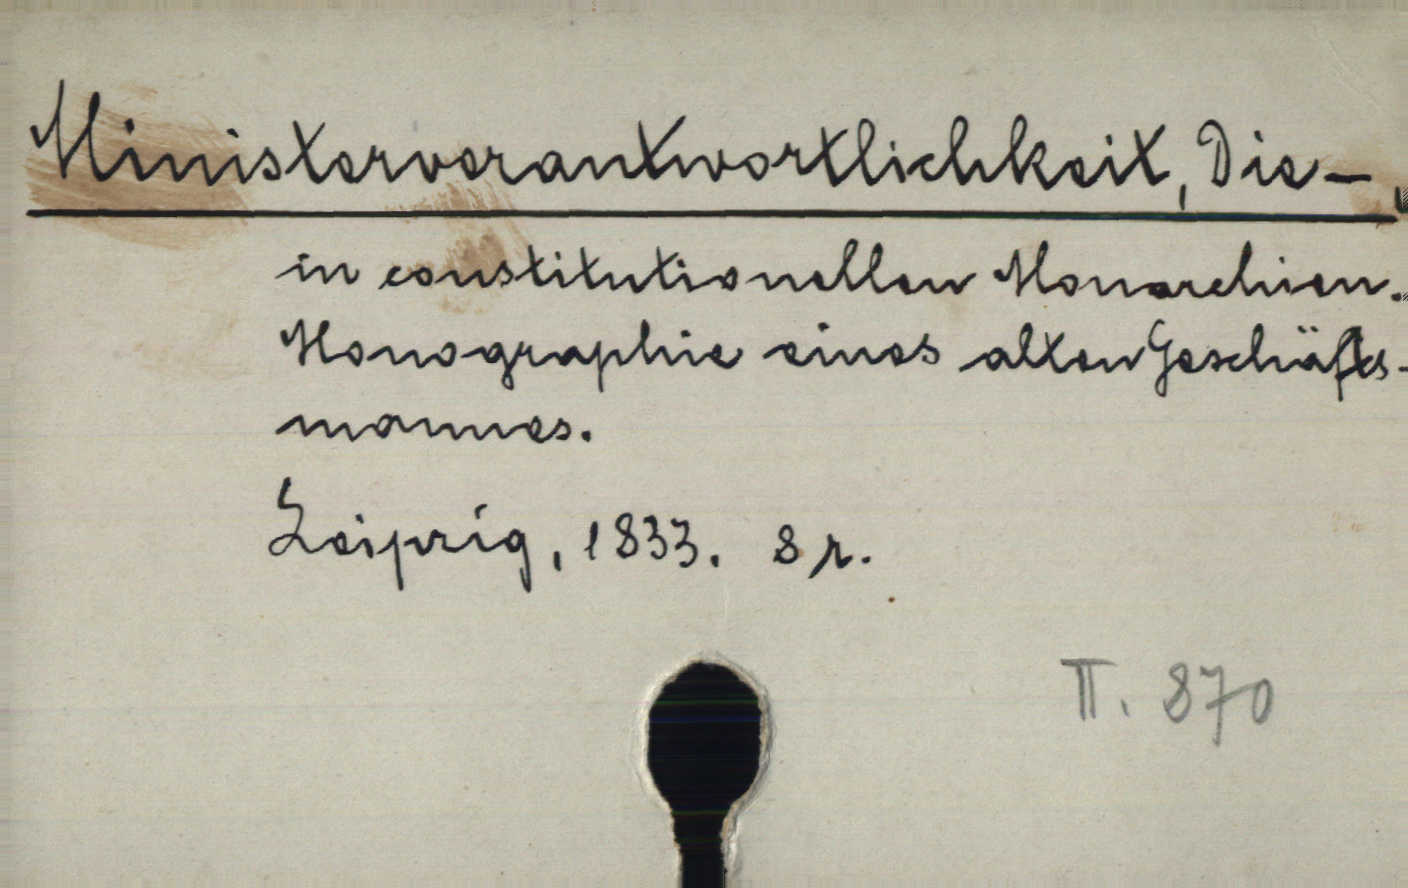 Ministerverantwortlichkeit, Die –
in constitutionellen Monarchien.
Monographie eines alten Geschäfts-
mannes.
Leipzig, 1833. 8 r.
II. 870